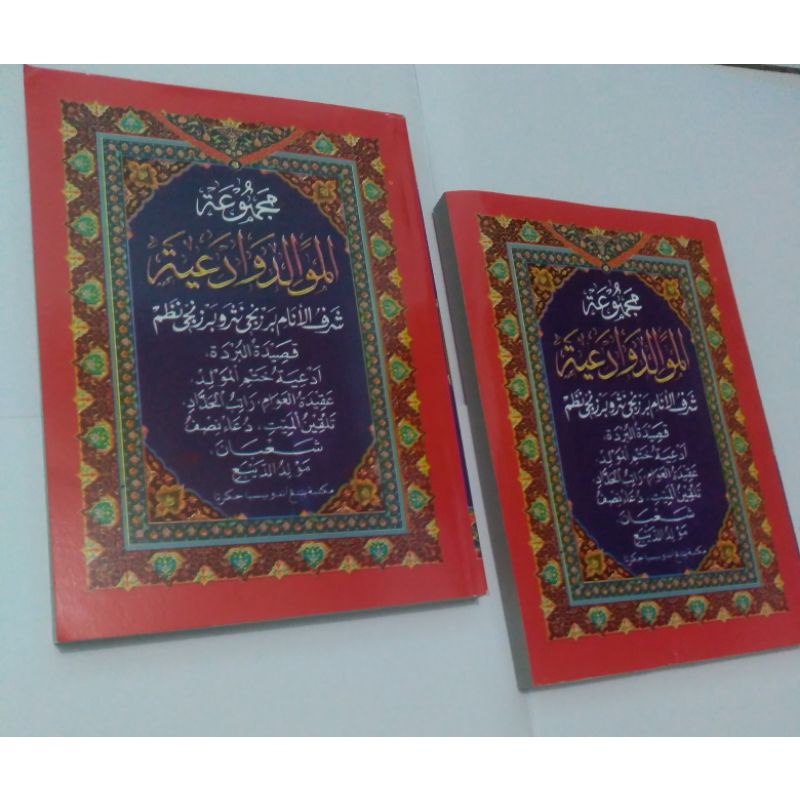 مَجْمُوْعَة
الموَالِد وَأَدْعِيَة
شَرَفُ الْأَنَام بَرْزَنْجِي نَثْر وَبَرْزَنْجِي نَظَم
قَصِيْدَةُ الْبُرْدَة،
اَدْعِيَة خَتْمِ الْمَوْلِد،
عَقِيْدَةُ الْعَوَام، رَاتِبُ الْحَدَّاد
تَلْقِيْنُ الْمَيِّتِ، دُعَاءِ نِصْفُ
شَعْبَانَ،
مَوْلِدُ الدَّيْبَعِ
مَجْمُوْعَة
الموَالِد وَأَدْعِيَة
شَرَفُ الْأَنَام بَرْزَنْجِي نَثْر وَبَرْزَنْجِي نَظَم
قَصِيْدَةُ الْبُرْدَة،
اَدْعِيَة خَتْمِ الْمَوْلِد
عَقِيْدَةُ الْعَوَام، رَاتِبُ الْحَدَّاد
تَلْقِيْنُ الْمَيِّتِ، دُعَاءِ نِصْفُ
شَعْبَانَ،
مَوْلِدُ الدَّيْبَعِ